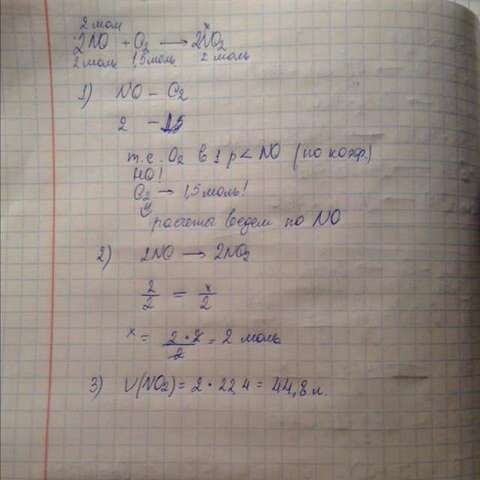 2 мол
x
2NO + O2 → 2NO2
2 моль 1,5 моль 2 моль
1) NO – O2
2 – 1,5
т.е. O2 в 1 р < NO (по коэф.)
НО!
O2 → 1,5 моль!
расчеты ведем по NO
2) 2NO → 2NO2
2/2 = x/2
x = 2·2/2 = 2 моль
3) V(NO2) = 2 · 22,4 = 44,8 л.